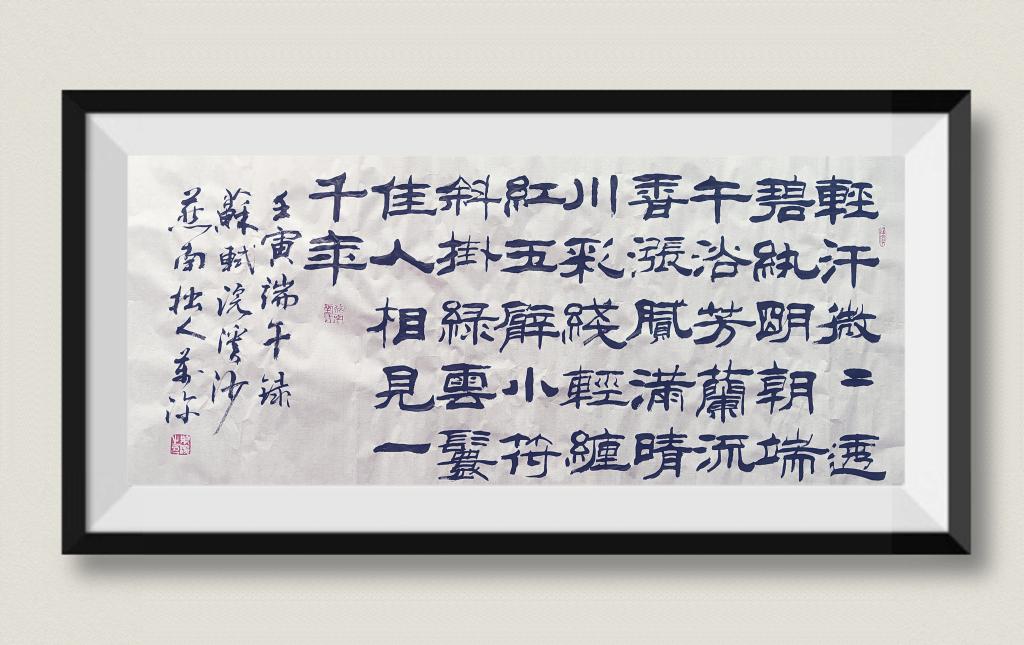 輕汗微〻透
碧紈明朝端
午浴芳蘭流
香漲膩滿晴
川彩綫輕纏
紅五臂小符
斜掛緑雲鬟
佳人相見一
千年
壬寅端午録
蘇軾浣溪沙
燕南拙人